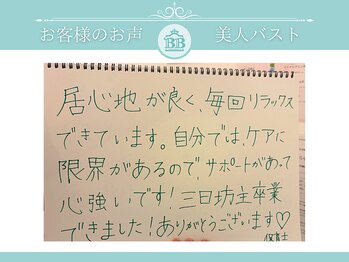 お客様のお声
BB
美人バスト
居心地が良く、毎回リラックス
できています。自分では、ケアに
限界があるので、サポートがあって
心強いです！三日坊主卒業
できました！ありがとうございます♡
保育士